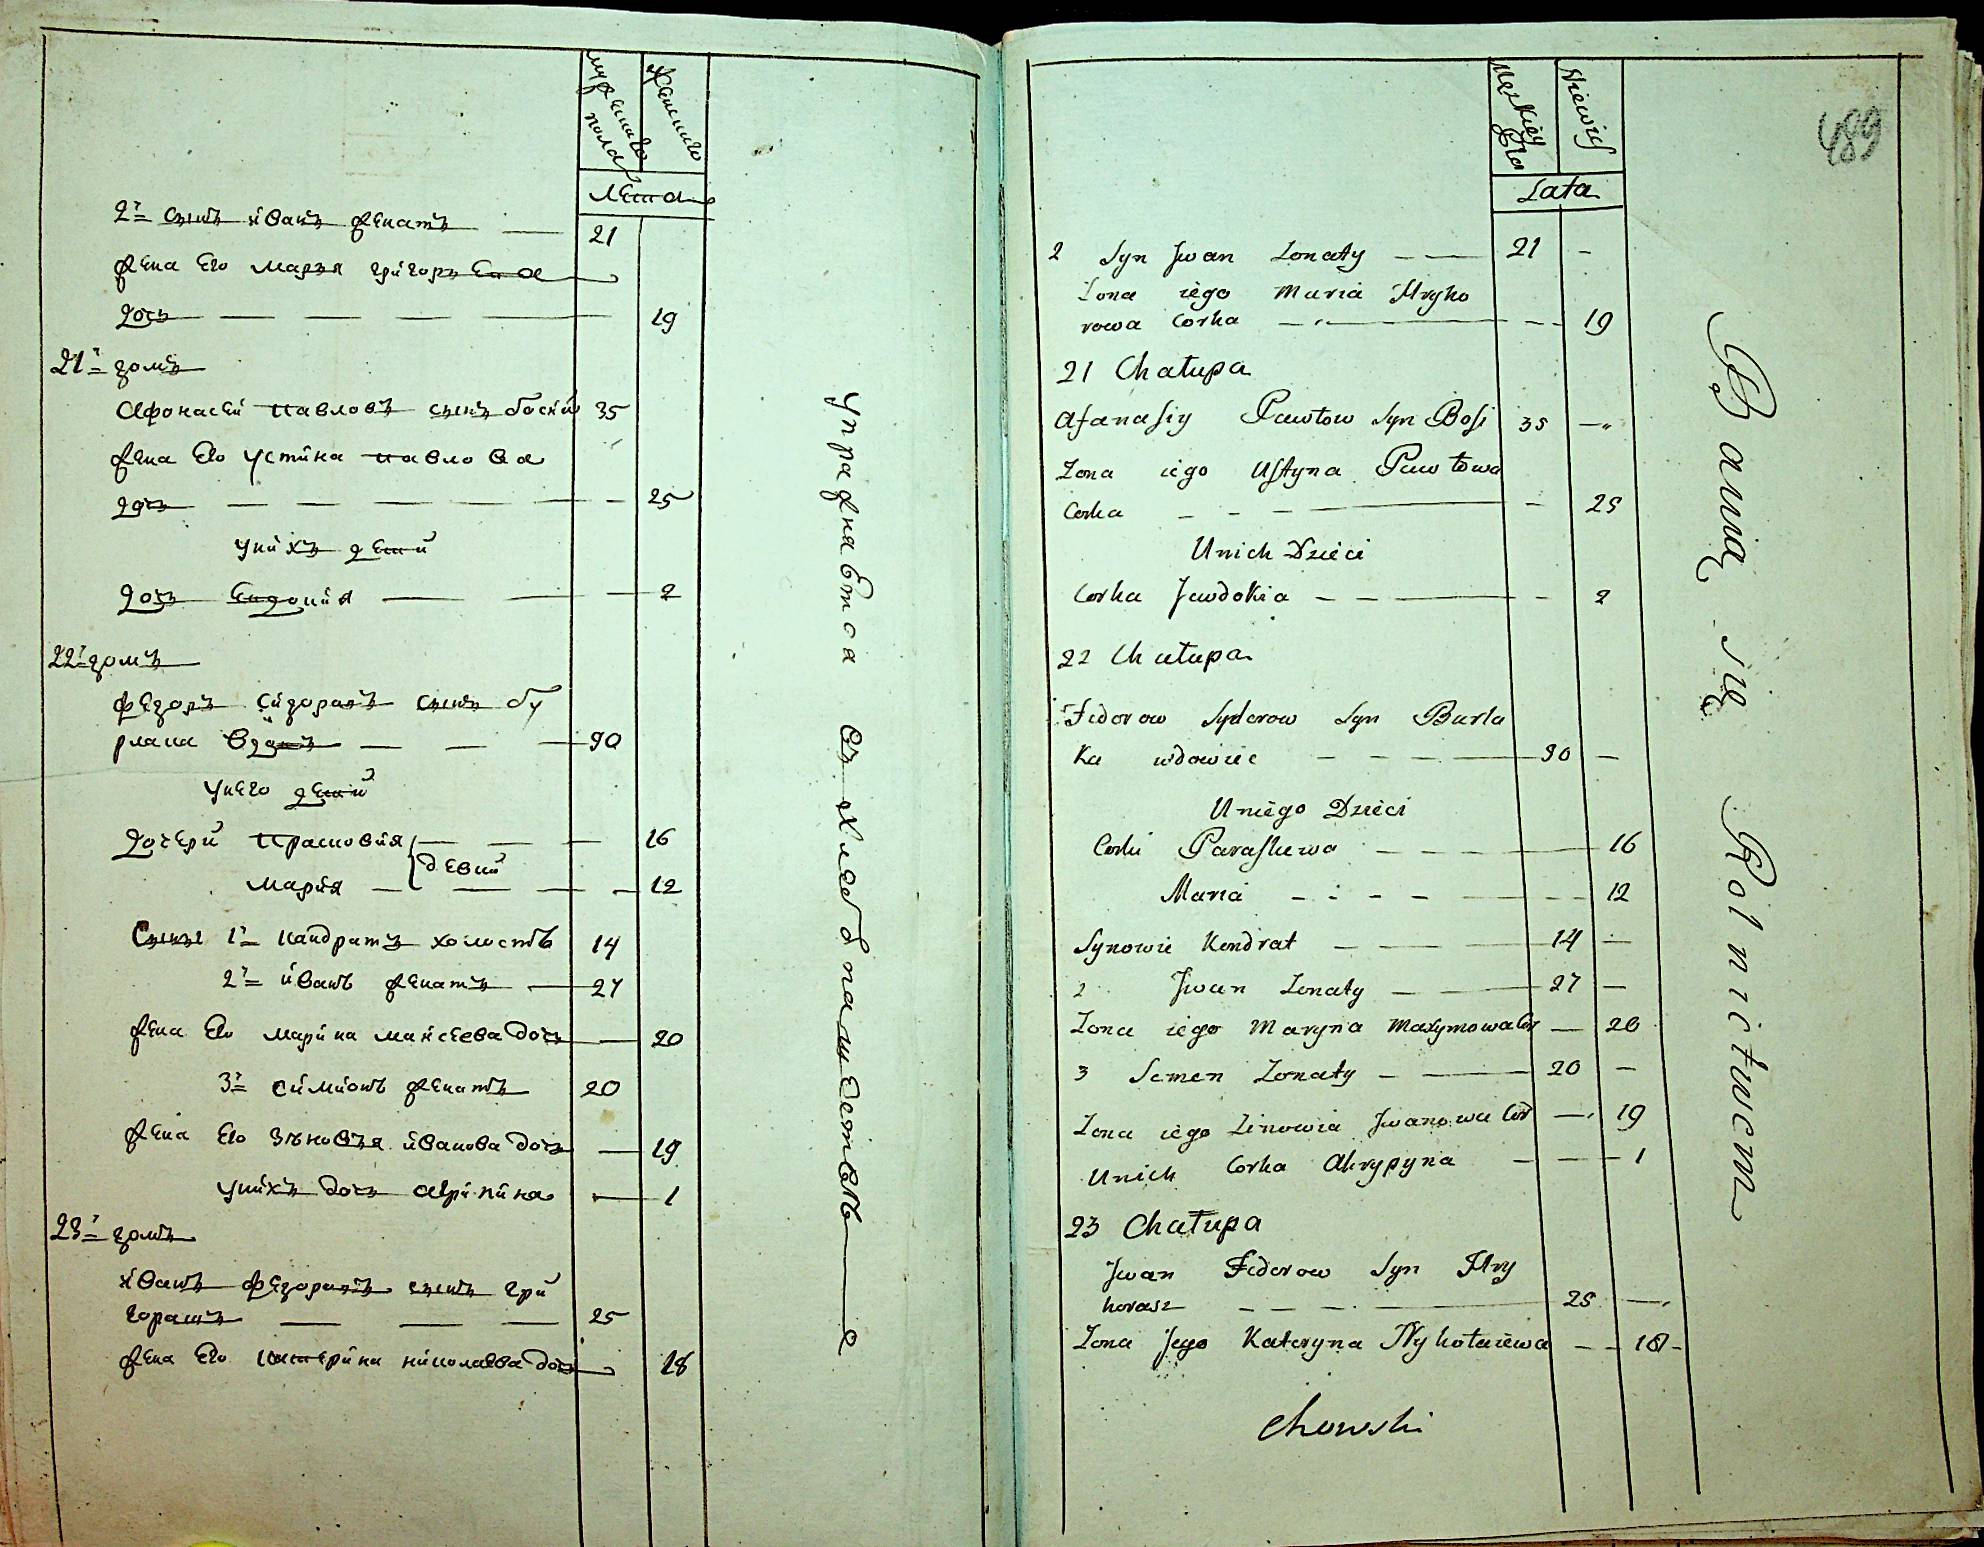 мужеска пола
Женского
Лета
2й сынъ иванъ женатъ 21
жена Его марья григорьева
дочь 19
21й домъ
Афонасей павловъ сынъ босий 35
жена Его устина павлова
дочь 25
уникъ детй
дочь Евдокия 2
22й домъ
федоръ сидоравъ сынъ бу
рлака вдавъ 90
унего детй
дочери прасковия 16
девки
мария 12
Сыны 1й кандратъ холостъ 14
2й иванъ женатъ 27
жена Его марина маисеева дочь 20
3й симионъ женатъ 20
жена Его зеновья иванова дочь 19
унихъ дочь агрипина 1
23й домъ
иванъ федоравъ сынъ гри
горашъ 25
жена Его катерина николаева дочь 18
упражнаются въ хлебопашестве
Męskiey Płci
Niewieś
Lata
489
2 Syn Jwan Zonaty — 21 -
Zona iego Maria Hryho
rowa Corka — 19
21 Chałupa
Afanasiy Pawłow Syn Bosi 35 —
Zona iego Ustyna Pawłowa
Corka — 25
Unich Dzieci
Corka Jewdokia — 2
22 Chałupa
Fedorow Syderow Syn Burla
ka wdowiec — 90 —
Uniego Dzieci
Corki Paraskewa — 16
Maria — 12
Synowie Kondrat — 14 —
2 Jwan Zonaty — 27 —
Zona iego Maryna Maxymowa Cor — 20
3 Semen Zonaty — 20 —
Zona iego Zinowia Jwanowa Cor — 19
Unich Corka Ahrypyna — 1
23 Chałupa
Jwan Fedorow Syn Hry
horasz — 25 —
Zona Jego Kateryna Nykołaiewa — 18 -
Bawią się Rolnictwem